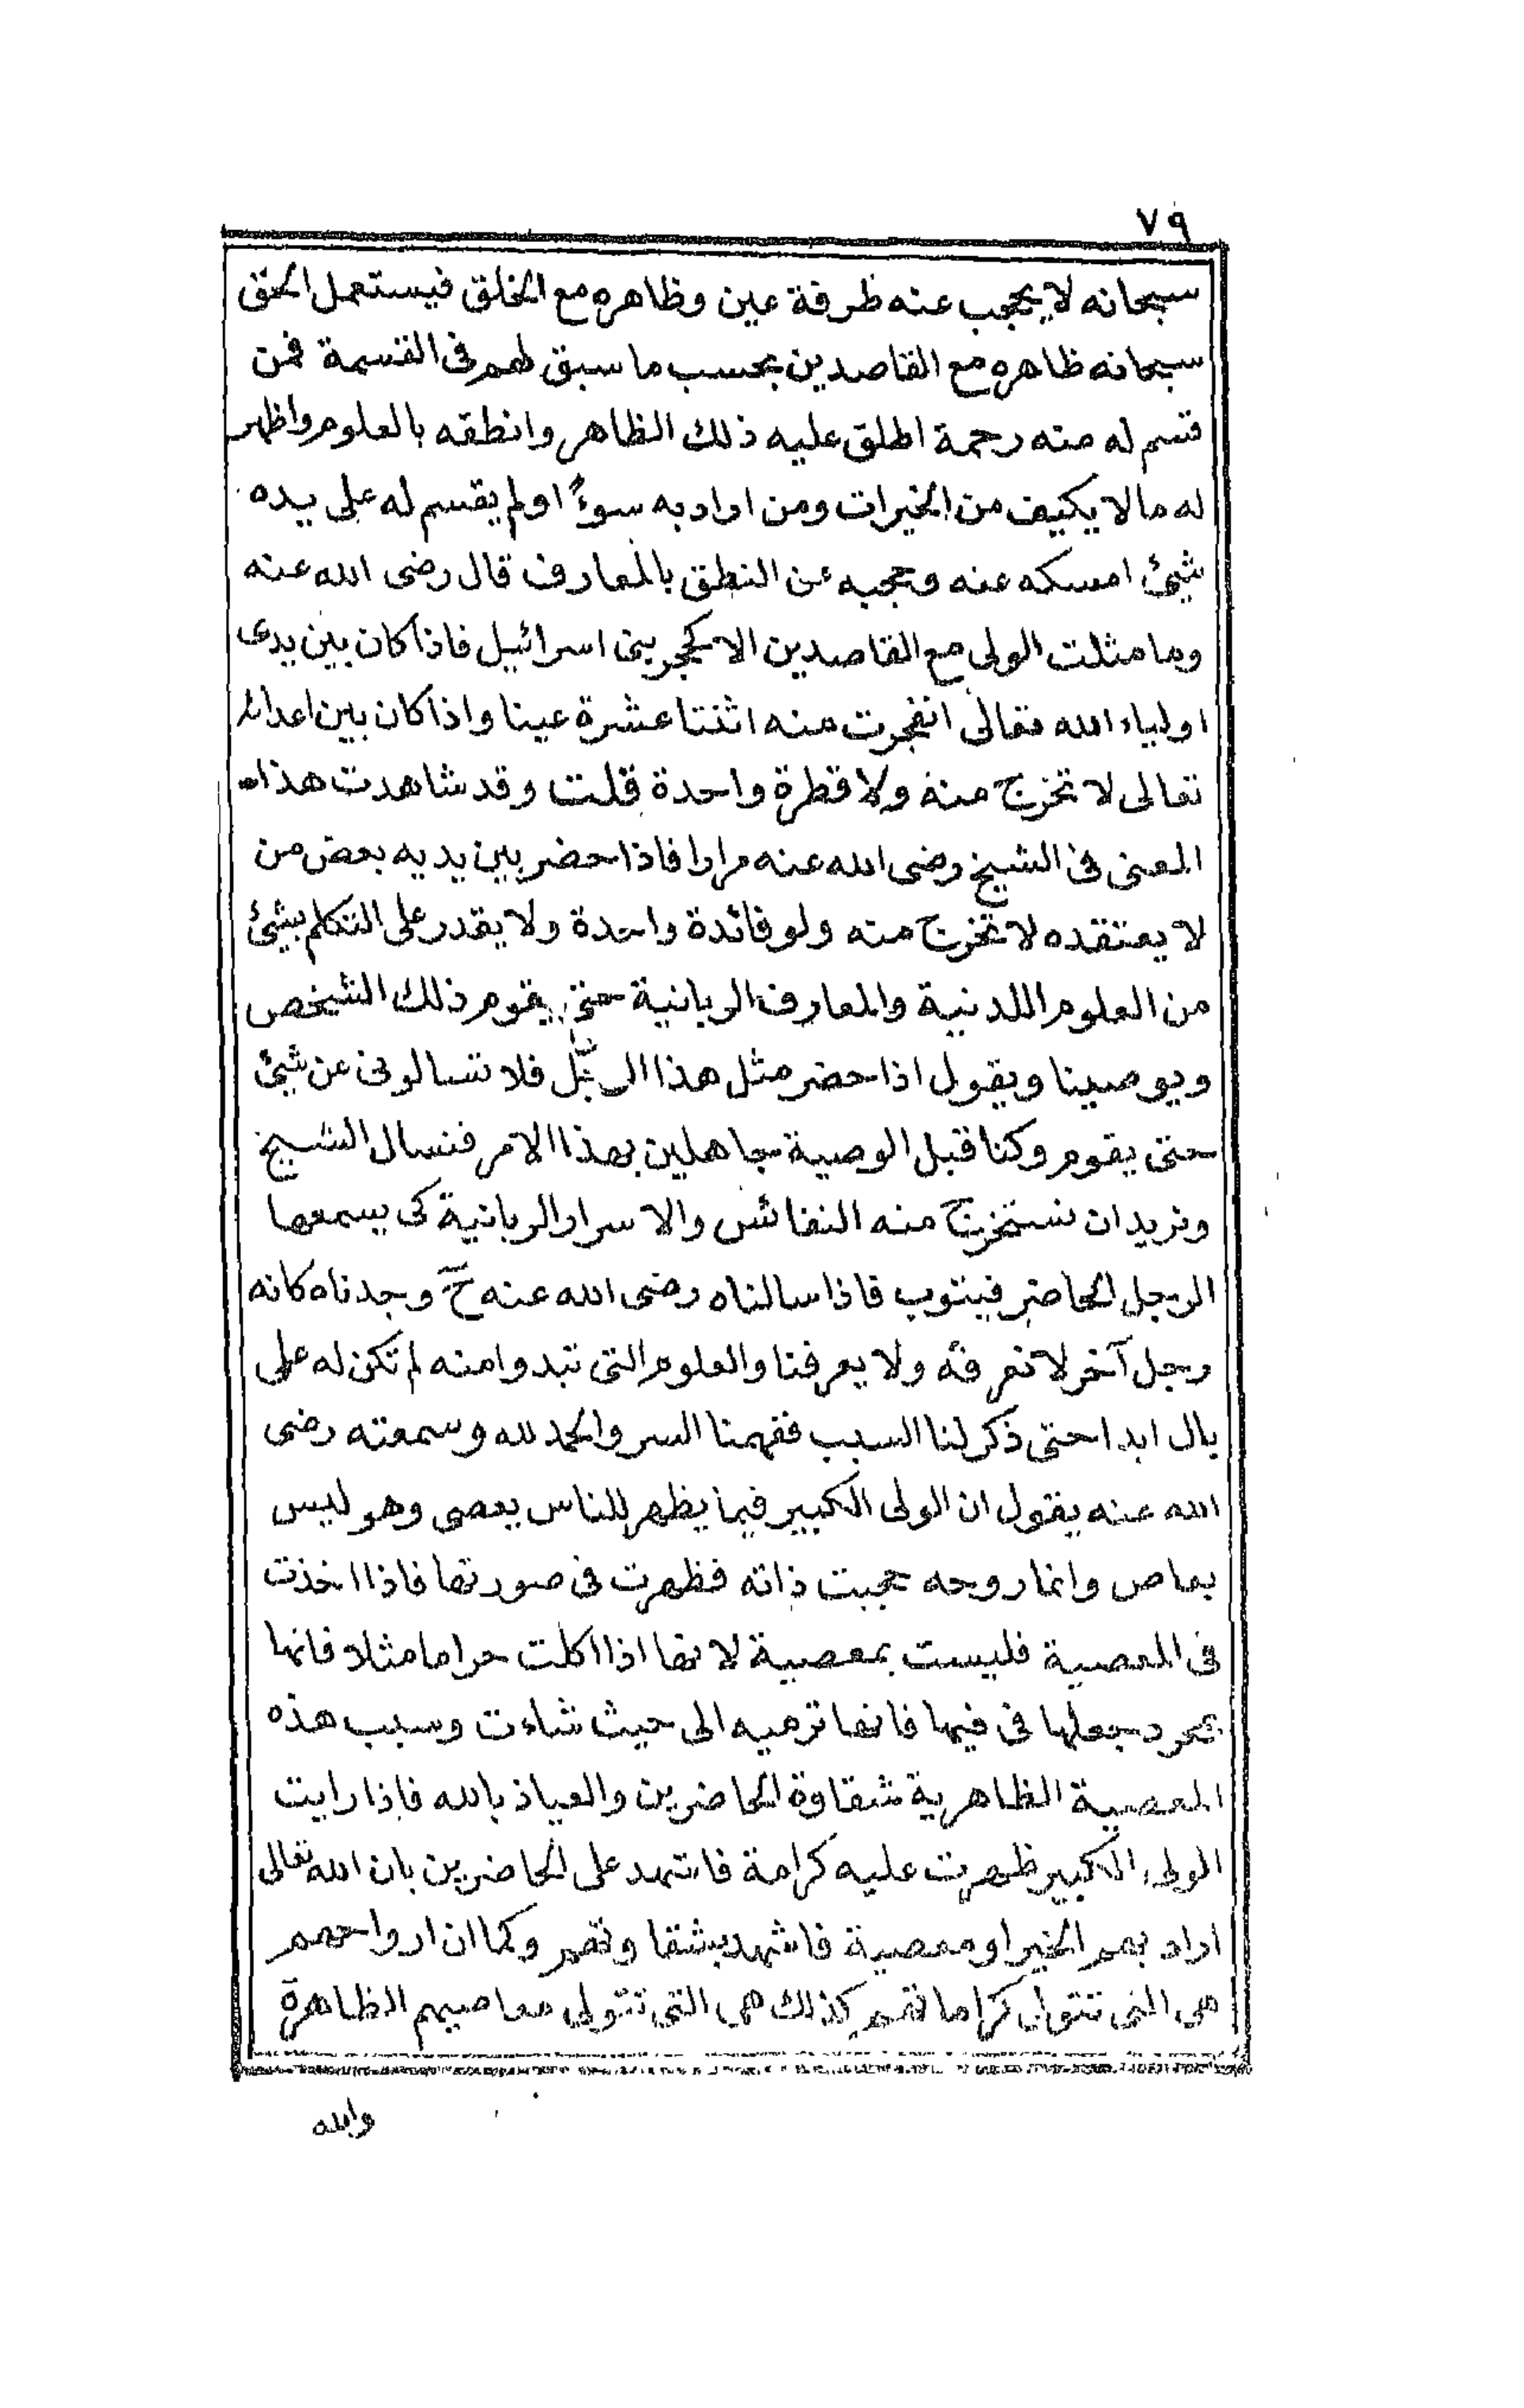 ٧٩
سبحانه لا يحجب عنه طرفة عين وظاهره مع الخلق فيستعمل الحق
سبحانه ظاهره مع القاصدين بحسب ما سبق لهم فى القسمة فمن
قسم له منه رحمة اطلق عليه ذلك الظاهر وانطقه بالعلوم واظهر
له مالا يكيف من الخيرات ومن اراد به سوءً اولم يقسم له على يده
شيئ امسكه عنه وحجبه عن النطق بالمعارف قال رضى الله عنه
وما مثلت الولى مع القاصدين الا كحجر بنى اسرائيل فاذا كان بين يدى
اولياء الله تعالى انفجرت منه اثنتا عشرة عينا واذا كان بين اعدائه
تعالى لا تخرج منه ولا قطرة واحدة قلت وقد شاهدت هذا
المعنى فى الشيخ رضى الله عنه مرارا فاذا حضر بين يديه بعض من
لا يعتقده لا تخرج منه ولو فائدة واحدة ولا يقدر على التكلم بشيئ
من العلوم اللدنية والمعارف الربانية حتى يقوم ذلك الشيخص
ويوصينا ويقول اذا حضر مثل هذا الرجل فلا تسالونى عن شيئ
حتى يقوم وكنا قبل الوصية جاهلين بهذا الامر فنسال الشيخ
ونريد ان نستخرج منه النفائس والاسرار الربانية كى يسمعها
الرجل الحاضر فيتوب فاذا سالناه رضى الله عنه ح وجدناه كانه
رجل آخر لا نعرفه ولا يعرفنا والعلوم التى تبدوا منه لم تكن له على
بال ابدا حتى ذكر لنا السبب ففهمنا السر والحمد لله وسمعته رضى
الله عنه يقول ان الولى الكبير فيما يظهر للناس يعصى وهو ليس
بعاص وانما روحه حجبت ذاته فظهرت فى صورتها فاذا اخذت
فى المعصية فليست بمعصية لانها اذا اكلت حراما مثلا فانها
بمجرد جعلها فى فيها فانها ترميه الى حيث شاءت وسبب هذه
المعصية الظاهرية شقاوة الحاضرين والعياذ بالله فاذا رايت
الولى الكبير ظهرت عليه كرامة فاشهد على الحاضرين بان الله تعالى
اراد بهم الخير او معصية فاشهد بشقاوتهم وكما ان ارواحهم
هى التى تتولى كراماتهم كذلك هى التى تتولى معاصيهم الظاهرة
والله